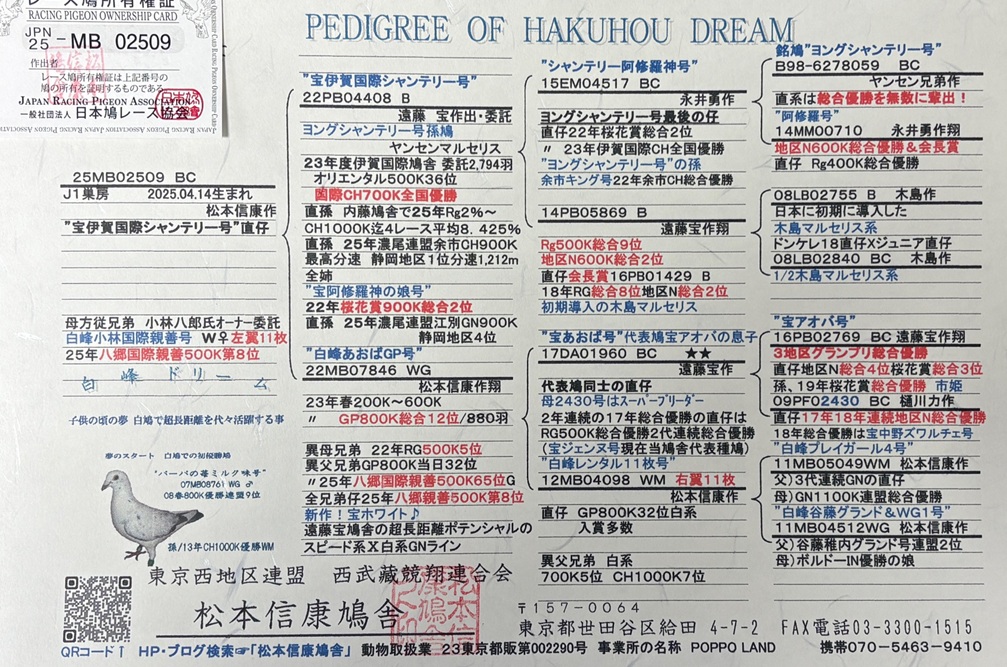 レース鳩所有権証
RACING PIGEON OWNERSHIP CARD
JPN
25-MB 02509
作出者
レース鳩所有権証は上記番号の
鳩の所有を証明するものである。
JAPAN RACING PIGEON ASSOCIATION
一般社団法人 日本鳩レース協会
PEDIGREE OF HAKUHOU DREAM
25MB02509 BC
J1巣房 2025.04.14生まれ
松本信康作
"宝伊賀国際シャンテリー号"直仔
母方従兄弟 小林八郎氏オーナー委託
白峰小林国際親善号 W♀左翼11枚
25年八郷国際親善500K第8位
白峰ドリーム
子供の頃の夢 白鳩で超長距離を代々活躍する事
夢のスタート 白鳩での初優勝鳩
"パーパの苺ミルク味号"
07MB08761 WG ♂
08春800K優勝連盟9位
孫/13年CH1000K優勝WM
"宝伊賀国際シャンテリー号"
22PB04408 B
遠藤 宝作出・委託
ヨングシャンテリー号孫鳩
ヤンセンマルセリス
23年度伊賀国際鳩舎 委託2,794羽
オリエンタル500K36位
国際CH700K全国優勝
直孫 内藤鳩舎で25年Rg2%～
CH1000K迄4レース平均8.425%
直孫 25年濃尾連盟余市CH900K
最高分速 静岡地区1位分速1,212m
全姉
"宝阿修羅神の娘号"
22年桜花賞900K総合2位
直孫 25年濃尾連盟江別GN900K
静岡地区4位
"白峰あおばGP号"
22MB07846 WG
松本信康作翔
23年春200K～600K
〃 GP800K総合12位/880羽
異母兄弟 22年RG500K5位
異父兄弟GP800K当日32位
〃25年八郷国際親善500K65位G
全兄弟仔25年八郷親善500K第8位
新作！宝ホワイト♪
遠藤宝鳩舎の超長距離ポテンシャルの
スピード系X白系GNライン
"シャンテリー阿修羅神号"
15EM04517 BC
永井勇作
ヨングシャンテリー号最後の仔
直仔22年桜花賞総合2位
〃 23年伊賀国際CH全国優勝
"ヨングシャンテリー号"の孫
余市キング号22年余市CH総合優勝
14PB05869 B
遠藤宝作翔
Rg500K総合9位
地区N600K総合2位
直仔会長賞16PB01429 B
18年RG総合8位地区N総合2位
初期導入の木島マルセリス
"宝あおば号"代表鳩宝アオバの息子
17DA01960 BC ★★
遠藤宝作
代表鳩同士の直仔
母2430号はスーパーブリーダー
2年連続の17年総合優勝の直仔は
RG500K総合優勝2代連続総合優勝
(宝ジェンヌ号現在当鳩舎代表種鳩)
"白峰レンタル11枚号"
12MB04098 WM 右翼11枚
松本信康作
直仔 GP800K32位白系
入賞多数
異父兄弟 白系
700K5位 CH1000K7位
銘鳩"ヨングシャンテリー号"
B98-6278059 BC
ヤンセン兄弟作
直系は総合優勝を無数に輩出！
"阿修羅号"
14MM00710 永井勇作翔
地区N600K総合優勝&会長賞
直仔 Rg400K総合優勝
08LB02755 B 木島作
日本に初期に導入した
木島マルセリス系
ドンケレ18直仔Xジュニア直仔
08LB02840 BC 木島作
1/2木島マルセリス系
"宝アオバ号"
16PB02769 BC 遠藤宝作翔
3地区グランプリ総合優勝
直仔地区N総合4位桜花賞総合3位
孫、19年桜花賞総合優勝 市姫
09PF02430 BC 樋川力作
直仔17年18年連続地区N総合優勝
18年総合優勝は宝中野ズワルチェ号
"白峰プレイガール4号"
11MB05049WM 松本信康作
父)3代連続GNの直仔
母)GN1100K連盟総合優勝
"白峰谷藤グランド&WG1号"
11MB04512WG 松本信康作
父)谷藤稚内グランド号連盟2位
母)ボルドーIN優勝の娘
東京西地区連盟 西武蔵競翔連合会
松本信康鳩舎
〒157-0064
東京都世田谷区給田 4-7-2 FAX電話03-3300-1515
QRコード↑ HP・ブログ検索☞「松本信康鳩舎」 動物取扱業 23東京都販第002290号 事業所の名称 POPPO LAND 携帯070-5463-9410